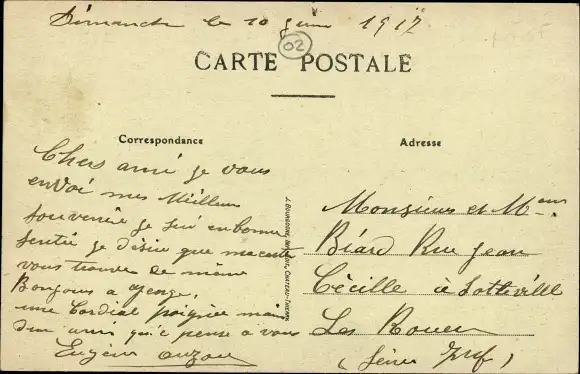 Dimanche le 10 juin 1917
02
CARTE POSTALE
Correspondance
Adresse
Chers ami je vous
envoi mes Meilleur
souvenir je sui en bonne
sentié je désire que ma carte
vous trouve de même
Bonjour a
une Cordial poignée main
d'un ami qui pense a vous
Eugène
Monsieur et Mme
Béard Rue Jean
Cécille à Sotteville
Les Rouen
(Seine Inf)
J. BOURGOGNE, CHATEAU-THIERRY